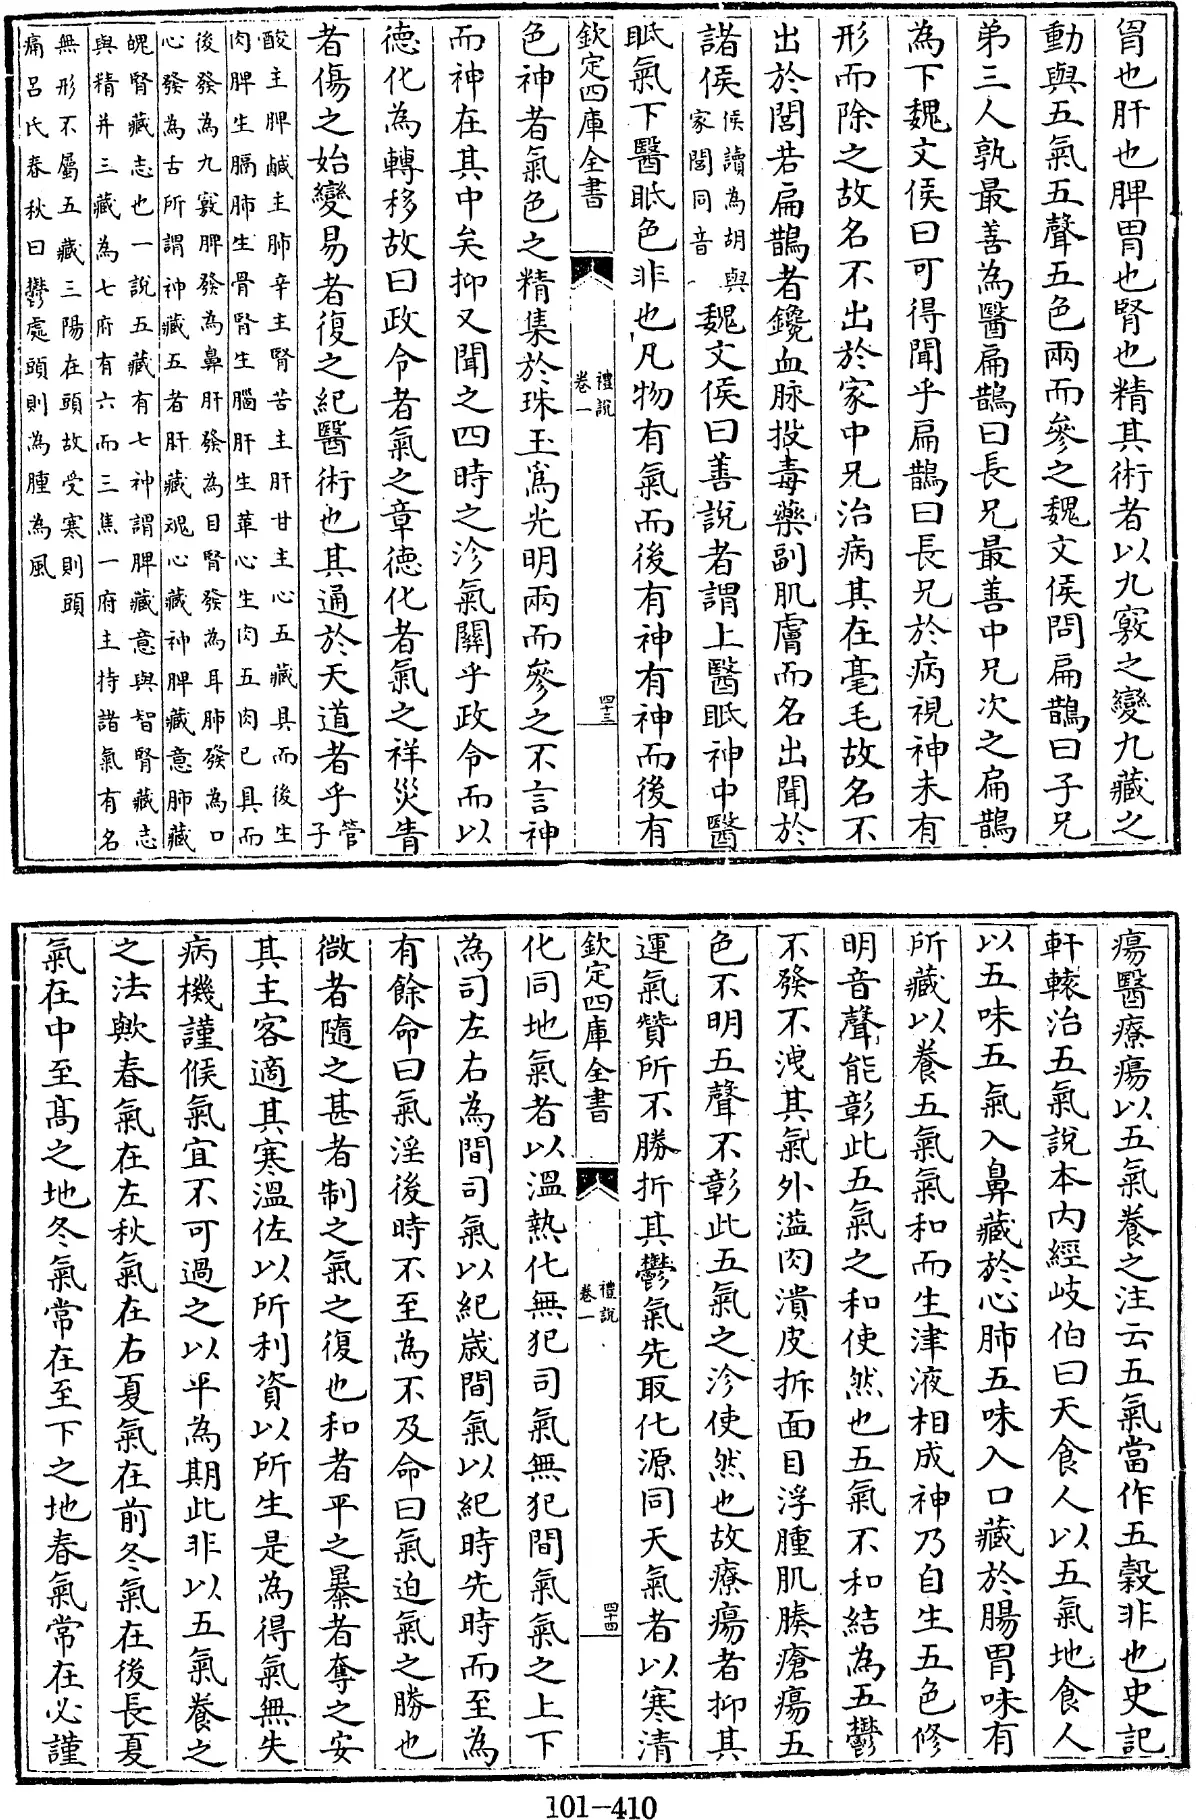 胷也肝也脾胃也腎也精其術者以九竅之變九藏之
動與五氣五聲五色兩而參之魏文侯問扁鵲曰子兄
弟三人孰最善為醫扁鵲曰長兄最善中兄次之扁鵲
為下魏文侯曰可得聞乎扁鵲曰長兄於病視神未有
形而除之故名不出於家中兄治病其在毫毛故名不
出於閭若扁鵲者鑱血脉投毒藥副肌膚而名出聞於
諸侯侯讀為胡與家閭同音魏文侯曰善説者謂上醫眡神中醫
眡氣下醫眡色非也凡物有氣而後有神有神而後有
欽定四庫全書
禮説
卷一
四十三
色神者氣色之精集於珠玉為光明兩而參之不言神
而神在其中矣抑又聞之四時之沴氣關乎政令而以
德化為轉移故曰政令者氣之章德化者氣之祥災眚
者傷之始變易者復之紀醫術也其通於天道者乎管子
酸主脾鹹主肺辛主腎苦主肝甘主心五藏具而後生
肉脾生膈肺生骨腎生腦肝生革心生肉五肉已具而
後發為九竅脾發為鼻肝發為目腎發為耳肺發為口
心發為古所謂神藏五者肝藏魂心藏神脾藏意肺藏
魄腎藏志也一説五藏有七神謂脾藏意與智腎藏志
與精并三藏為七府有六而三焦一府主持諸氣有名
無形不屬五藏三陽在頭故受寒則頭
痛吕氏春秋曰鬱處頭則為腫為風
瘍醫療瘍以五氣養之注云五氣當作五穀非也史記
軒轅治五氣説本内經岐伯曰天食人以五氣地食人
以五味五氣入鼻藏於心肺五味入口藏於腸胃味有
所藏以養五氣氣和而生津液相成神乃自生五色修
明音聲能彰此五氣之和使然也五氣不和結為五鬱
不發不洩其氣外溢肉潰皮拆面目浮腫肌腠瘡瘍五
色不明五聲不彰此五氣之沴使然也故療瘍者抑其
運氣贊所不勝折其鬱氣先取化源同天氣者以寒清
欽定四庫全書
禮説
卷一
四十四
化同地氣者以温熱化無犯司氣無犯間氣氣之上下
為司左右為間司氣以紀嵗間氣以紀時先時而至為
有餘命曰氣淫後時不至為不及命曰氣迫氣之勝也
微者隨之甚者制之氣之復也和者平之暴者奪之安
其主客適其寒温佐以所利資以所生是為得氣無失
病機謹候氣宜不可過之以平為期此非以五氣養之
之法歟春氣在左秋氣在右夏氣在前冬氣在後長夏
氣在中至髙之地冬氣常在至下之地春氣常在必謹
101-410